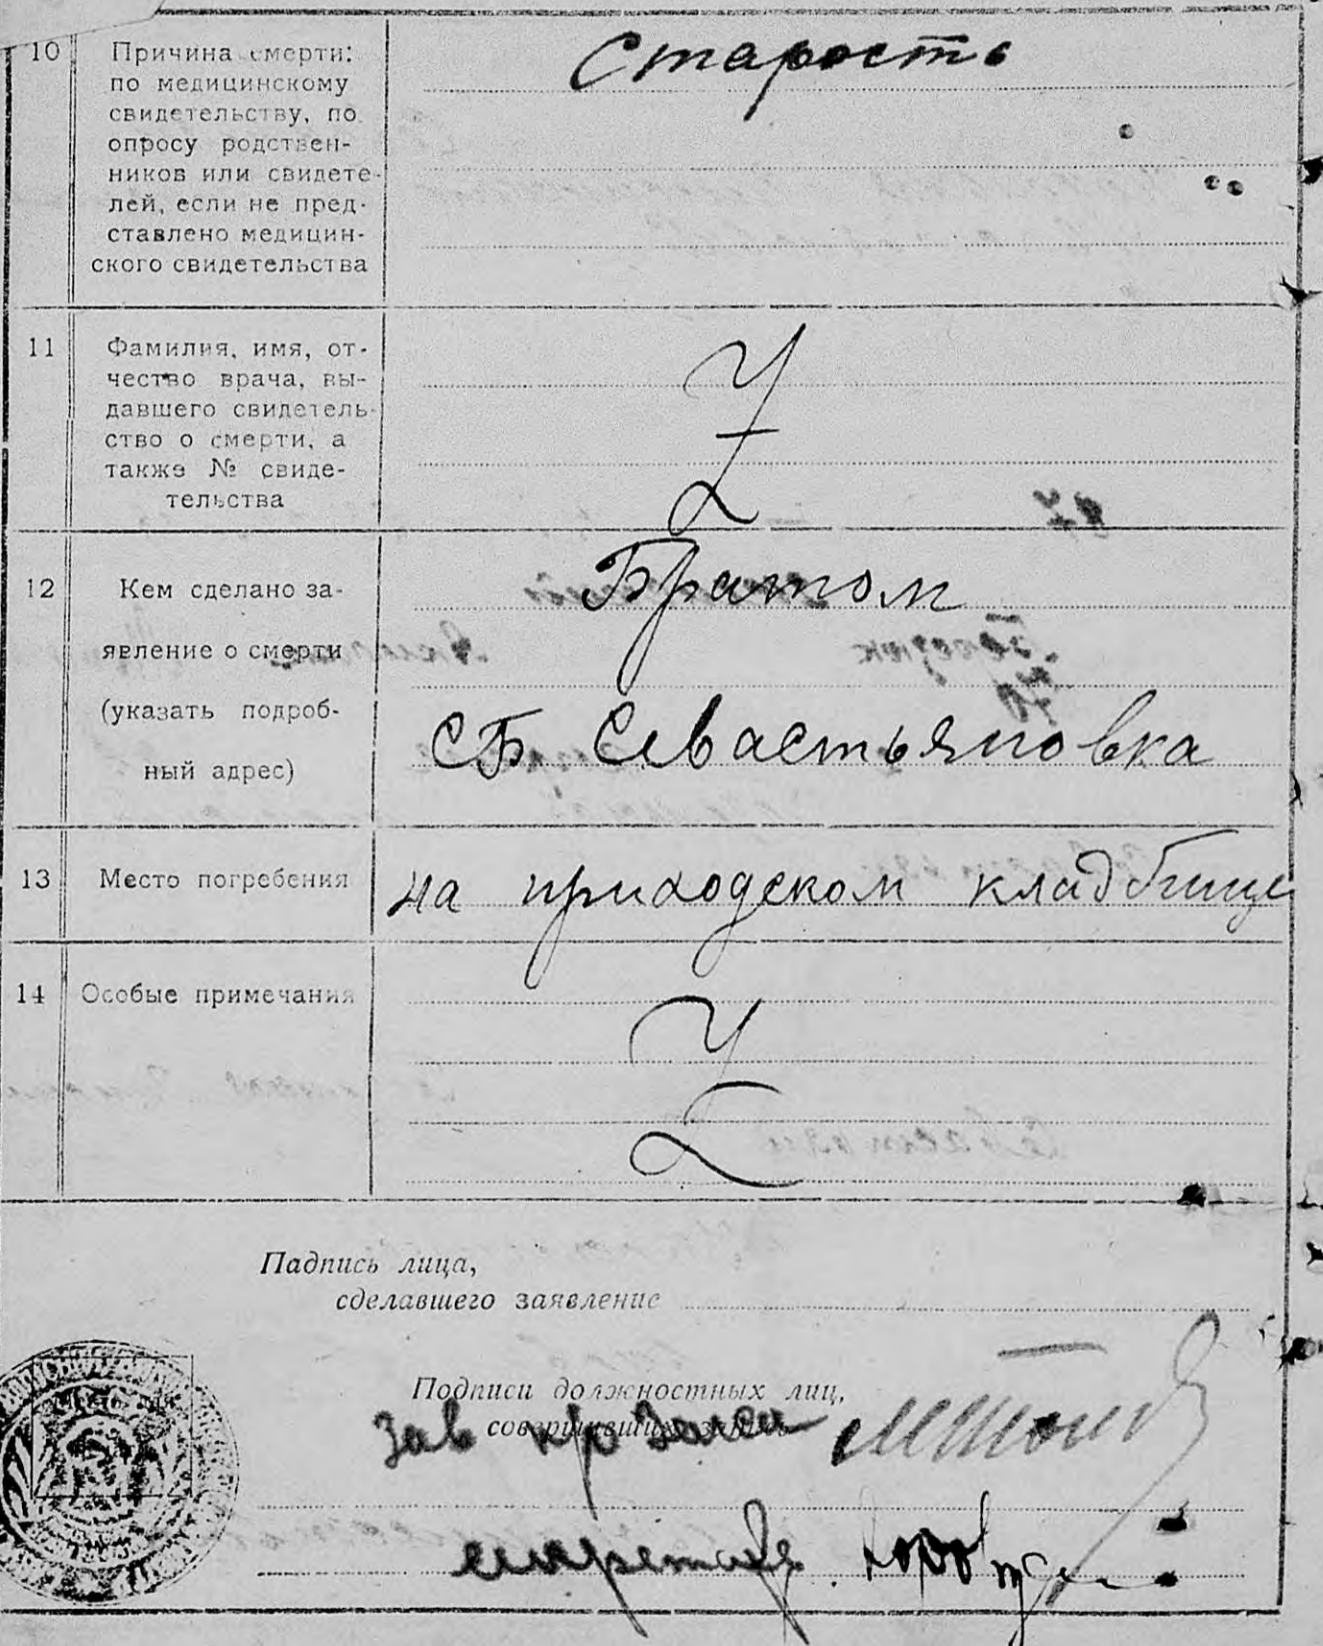 10 Причина смерти:
по медицинскому
свидетельству, по
опросу родствен-
ников или свидете-
лей, если не пред-
ставлено медицин-
ского свидетельства
Старость
11 Фамилия, имя, от-
чество врача, вы-
давшего свидетель-
ство о смерти, а
также № свиде-
тельства
Z
12 Кем сделано за-
явление о смерти
(указать подроб-
ный адрес)
Братом
СБ Севастьяновка
13 Место погребения
на приходском кладбище
14 Особые примечания
Z
Падпись лица,
сделавшего заявление
Подписи должностных лиц,
совершивших запись
Зав кр Загса
секретарь